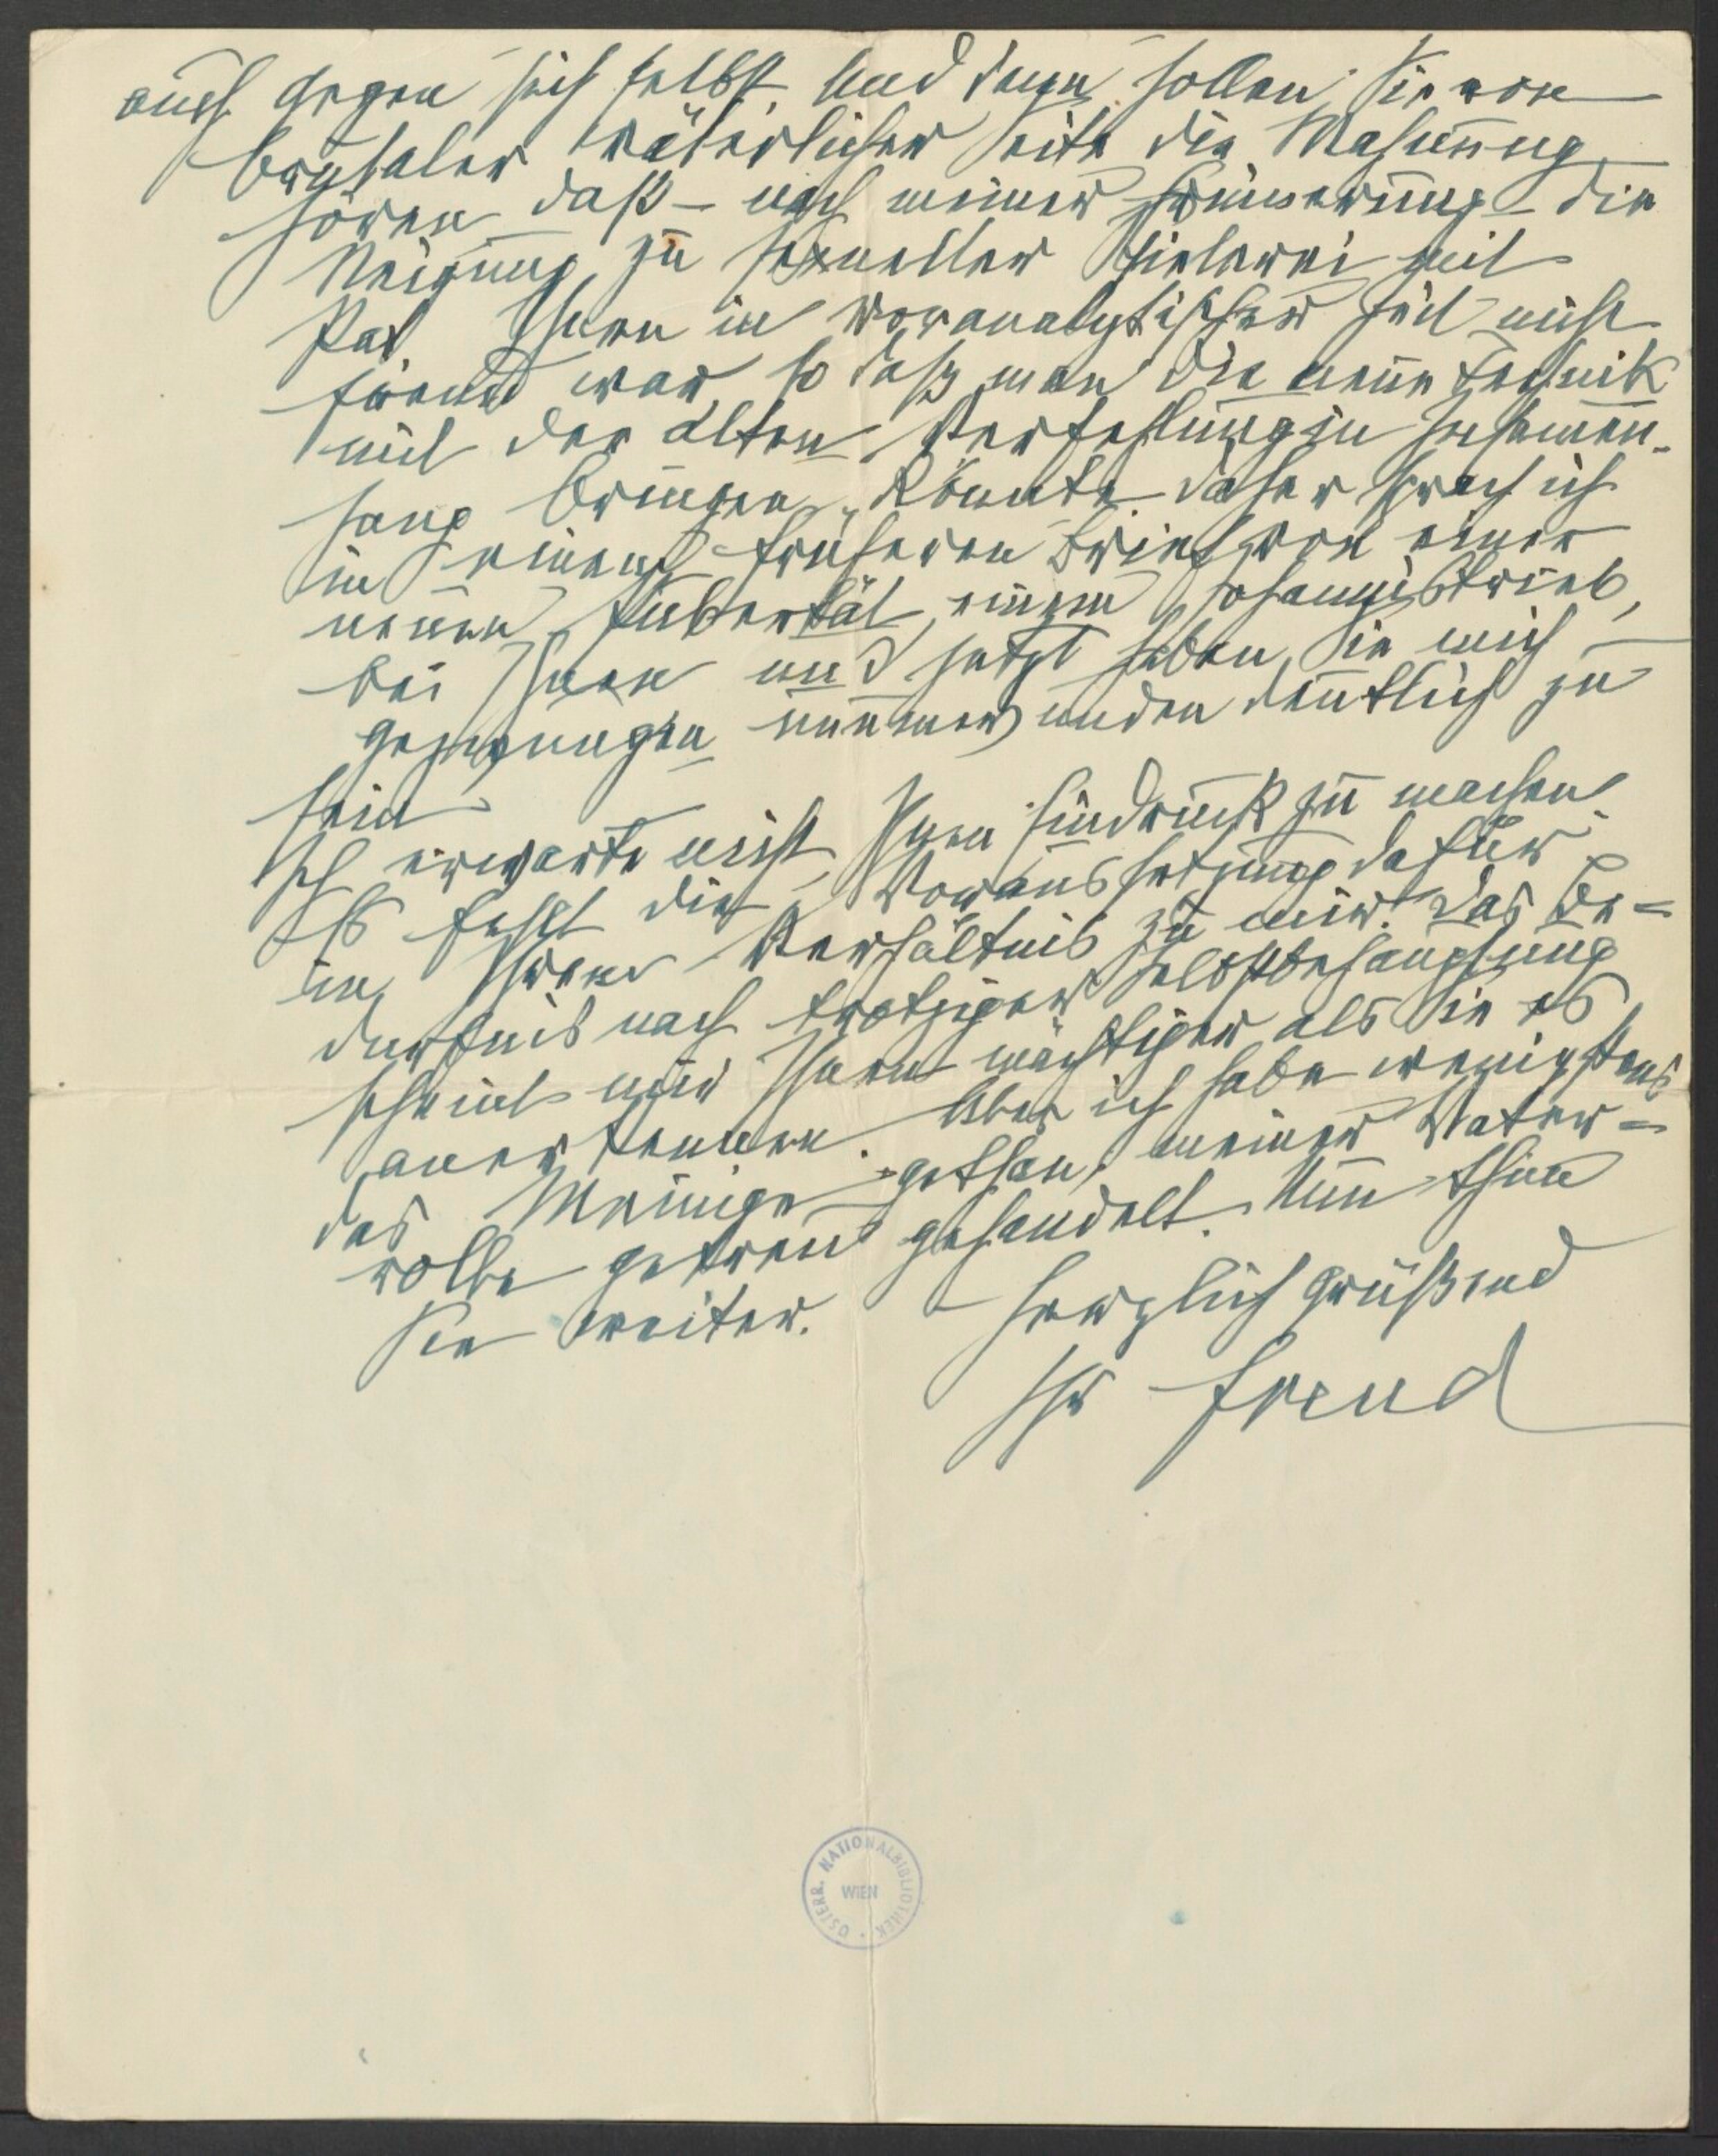 auch gegen sich selbst. Und dann sollen Sie von
brutaler väterlicher Seite die Mahnung
hören, daß – nach meiner Erinnerung – die
Neigung zu sexueller Spielerei mit
Pat. Ihnen in voranalytischer Zeit nicht
fremd war, so daß man die neue Technik
mit der alten Verfehlung in Zusammen-
hang bringen könnte. Daher sprach ich
in einem früheren Brief von einer
neuen Pubertät, einem Johannistrieb
bei Ihnen und jetzt haben Sie mich
gezwungen deutlich zu
sein.
Ich erwarte nicht, Ihnen Eindruck zu machen.
Es fehlt die Voraussetzung dafür
in Ihrem Verhältnis zu mir. Das Be=
dürfnis nach trotziger Selbstbehauptung
scheint mir Ihnen mächtiger als Sie es
anerkennen. Aber ich habe wenigstens
das Meinige gethan, meiner Vater=
rolle getreu gehandelt. Nun thun
Sie weiter.
Herzlich grüßend
Ihr Freud
ÖSTERR. NATIONALBIBLIOTHEK
WIEN